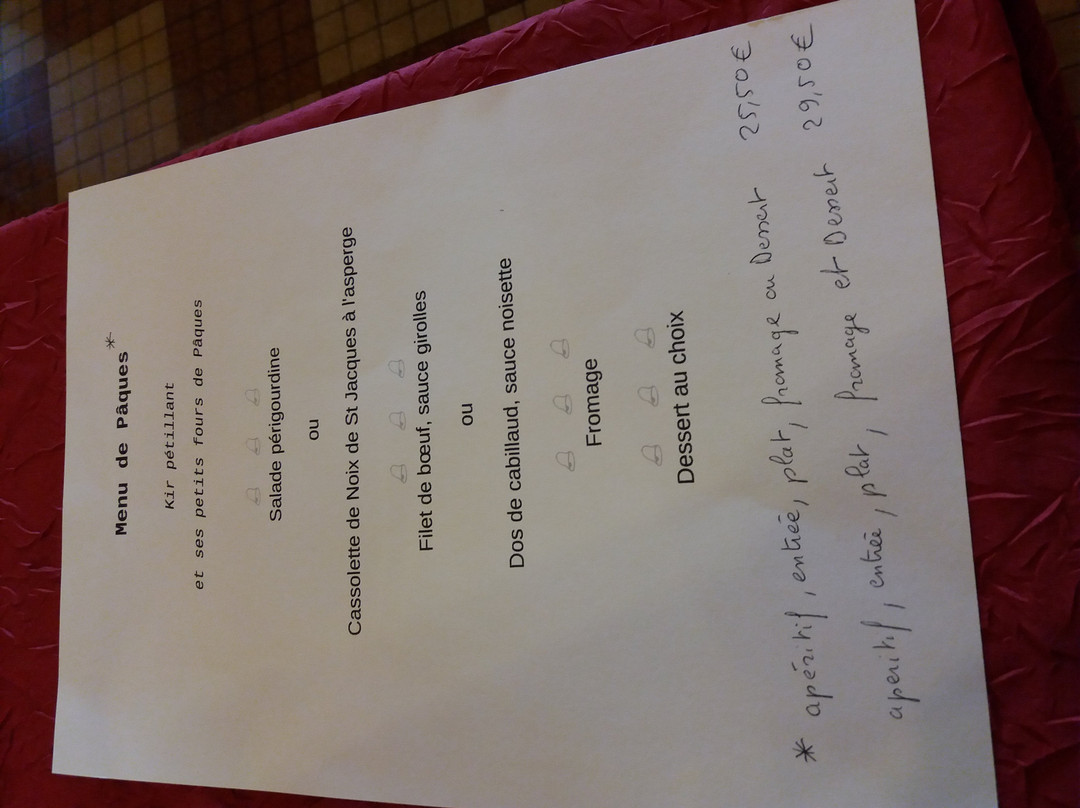 Menu de Pâques*
Kir pétillant
et ses petits fours de Pâques
Salade périgourdine
ou
Cassolette de Noix de St Jacques à l'asperge
Filet de bœuf, sauce girolles
ou
Dos de cabillaud, sauce noisette
Fromage
Dessert au choix
* apéritif, entrée, plat, fromage ou Dessert 25,50€
aperitif, entrée, plat, fromage et Dessert 29,50€